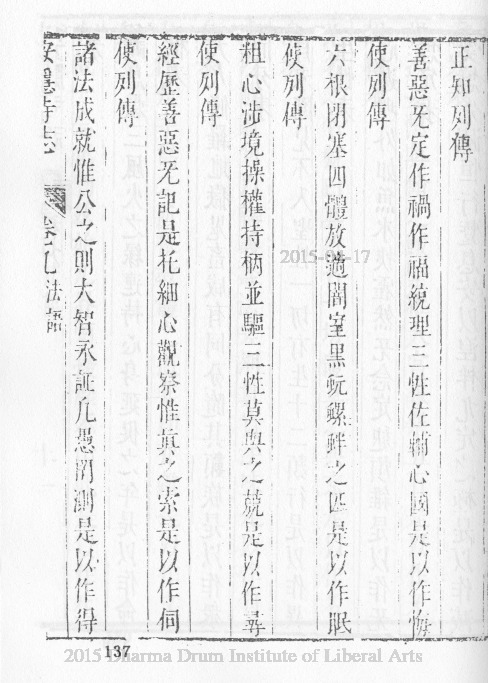 正知列傳
善惡旡定作禍作福統理三性佐輔心國是以作悔
使列傳
六根閉塞四體放逸闇室黑䖤螺蚌之匹是以作眠
使列傳
粗心涉境操權持柄並驅三性莫與之兢是以作尋
使列傳
經歷善惡旡記是托細心觀察惟真之索是以作伺
使列傳
諸法成就惟公之則大智永証凡愚罔測是以作得
安隱寺志 卷之九 法語
2015-04-17
137
2015 Dharma Drum Institute of Liberal Arts